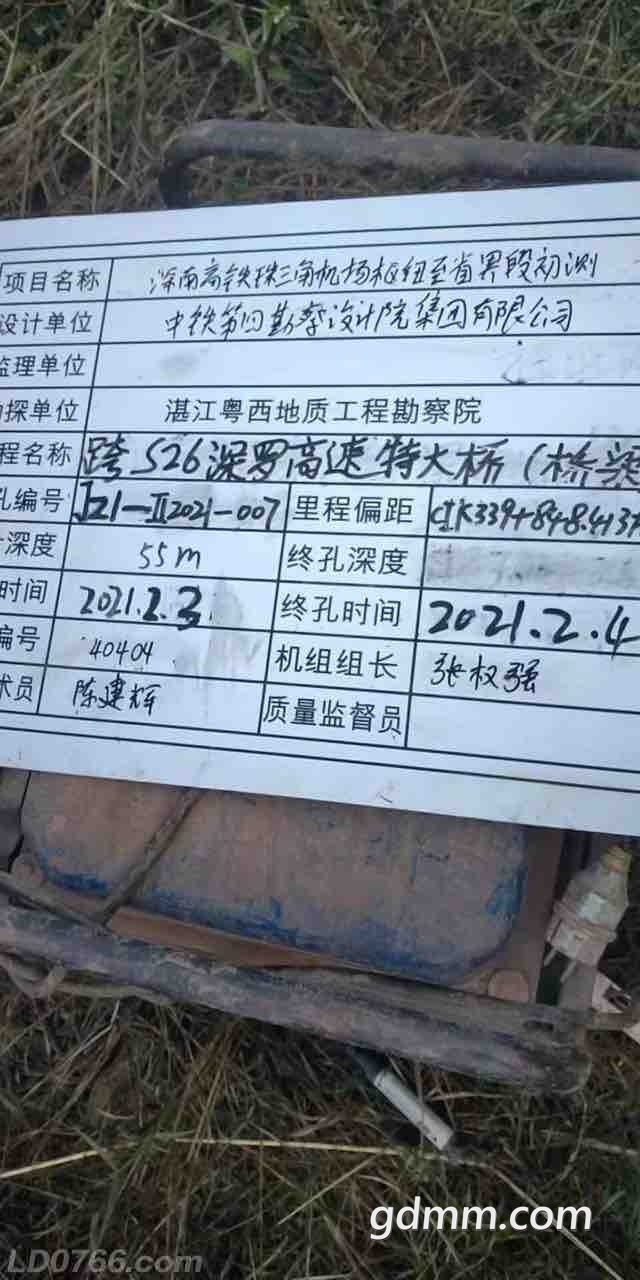 项目名称 深南高铁珠三角机场枢纽至省界段初测
设计单位 中铁第四勘察设计院集团有限公司
监理单位
探单位 湛江粤西地质工程勘察院
程名称 跨S26深罗高速特大桥(桥梁
孔编号 JZ1-II2021-007 里程偏距
深度 55m 终孔深度
时间 2021.2.3 终孔时间 2021.2.4
编号 40404 机组组长 张权强
术员 陈建辉 质量监督员
gdmm.com
LD0766.com